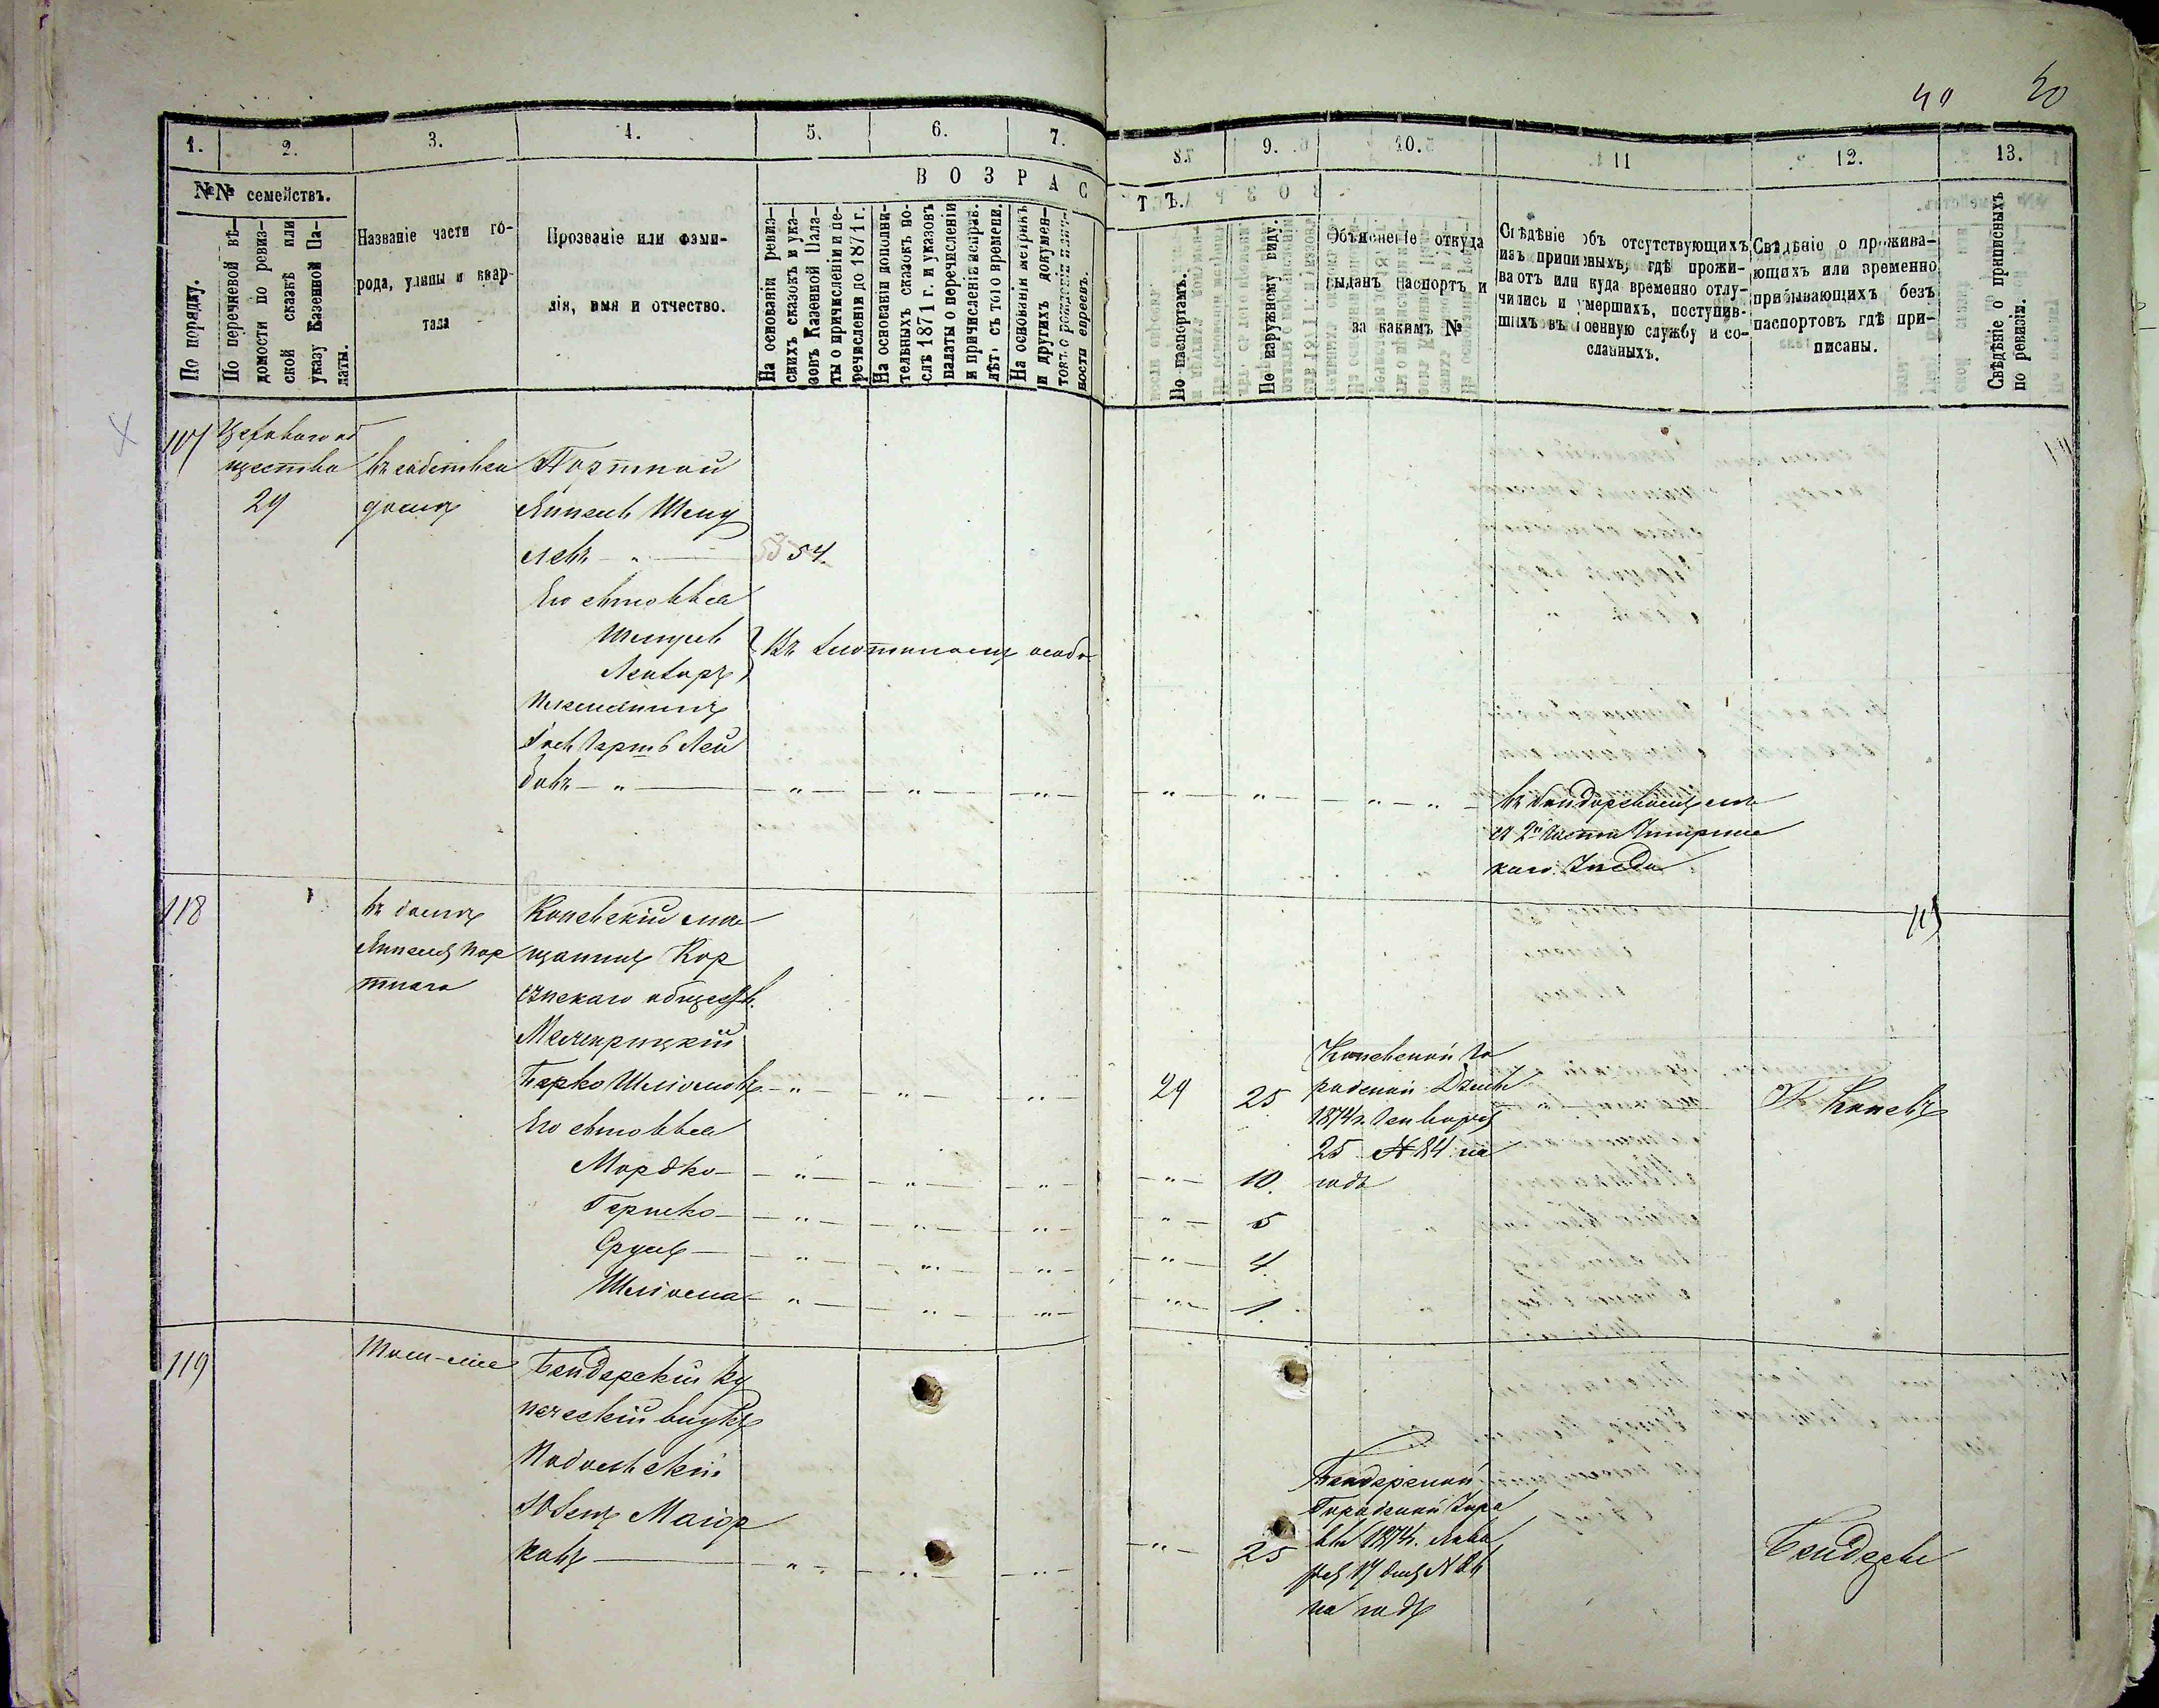 40 50
1. 2. 3. 4. 5. 6. 7. 8. 9. 10. 11 12. 13.
№№ семействъ.
По порядку.
По перечневой вѣ-
домости по ревиз-
ской сказкѣ или
указу Казенной Па-
латы.
Названіе части го-
рода, улицы и квар-
тала
Прозваніе или фами-
лія, имя и отчество.
ВОЗРАСТЪ.
На основаніи ревиз-
скихъ сказокъ и ука-
зовъ Казенной Пала-
ты о причисленіи и пе-
речисленіи до 1871 г.
На основаніи дополни-
тельныхъ сказокъ по-
слѣ 1871 г. и указовъ
палаты о перечисленіи
и причисленіи исправ.
лѣтъ съ того времени.
На основаніи метрикъ
и другихъ докумен-
товъ о рожденіи
ности евреевъ.
По паспортамъ.
По наружному виду.
Объясненіе откуда
выданъ паспортъ и
за какимъ №
Свѣдѣніе объ отсутствующихъ
изъ приписныхъ, гдѣ прожи-
ваютъ или куда временно отлу-
чились и умершихъ, поступив-
шихъ въ военную службу и со-
сланныхъ.
Свѣдѣніе о прожива-
ющихъ или временно
прибывающихъ безъ
паспортовъ гдѣ при-
писаны.
Свѣдѣніе о приписныхъ
по ревизіи.
117
Цеховаго об
щества
29
въ собствен
домѣ
Портной
Янкель Шму
левъ 53 54.
Его сыновья
Шмуль
Лейзоръ
Въ алфавитъ особо
Племянникъ
Лей
бовъ
2й части
каго уѣзда
118
въ домѣ
Янкеля Пор
тного
Каневскій мѣ
щанинъ Кор
сунскаго обществ.
Межирицкій
Берко Шліомовъ 29 25
Каневской Го
родской Думы
1874 г. Генваря
25 № 84 на
годъ
Г. Каневъ
Его сыновья
Мордко 10.
Гершко 5
Сруль 4.
Шліома 1.
119
Тамъ-же
Бендерскій ку
печескій внукъ
Подольскій
Іосель Маіор
ковъ 25
Бендерской
Городской Упра
вы 1874 г. Янва
ря 17 дня №
на годъ
Бендеры